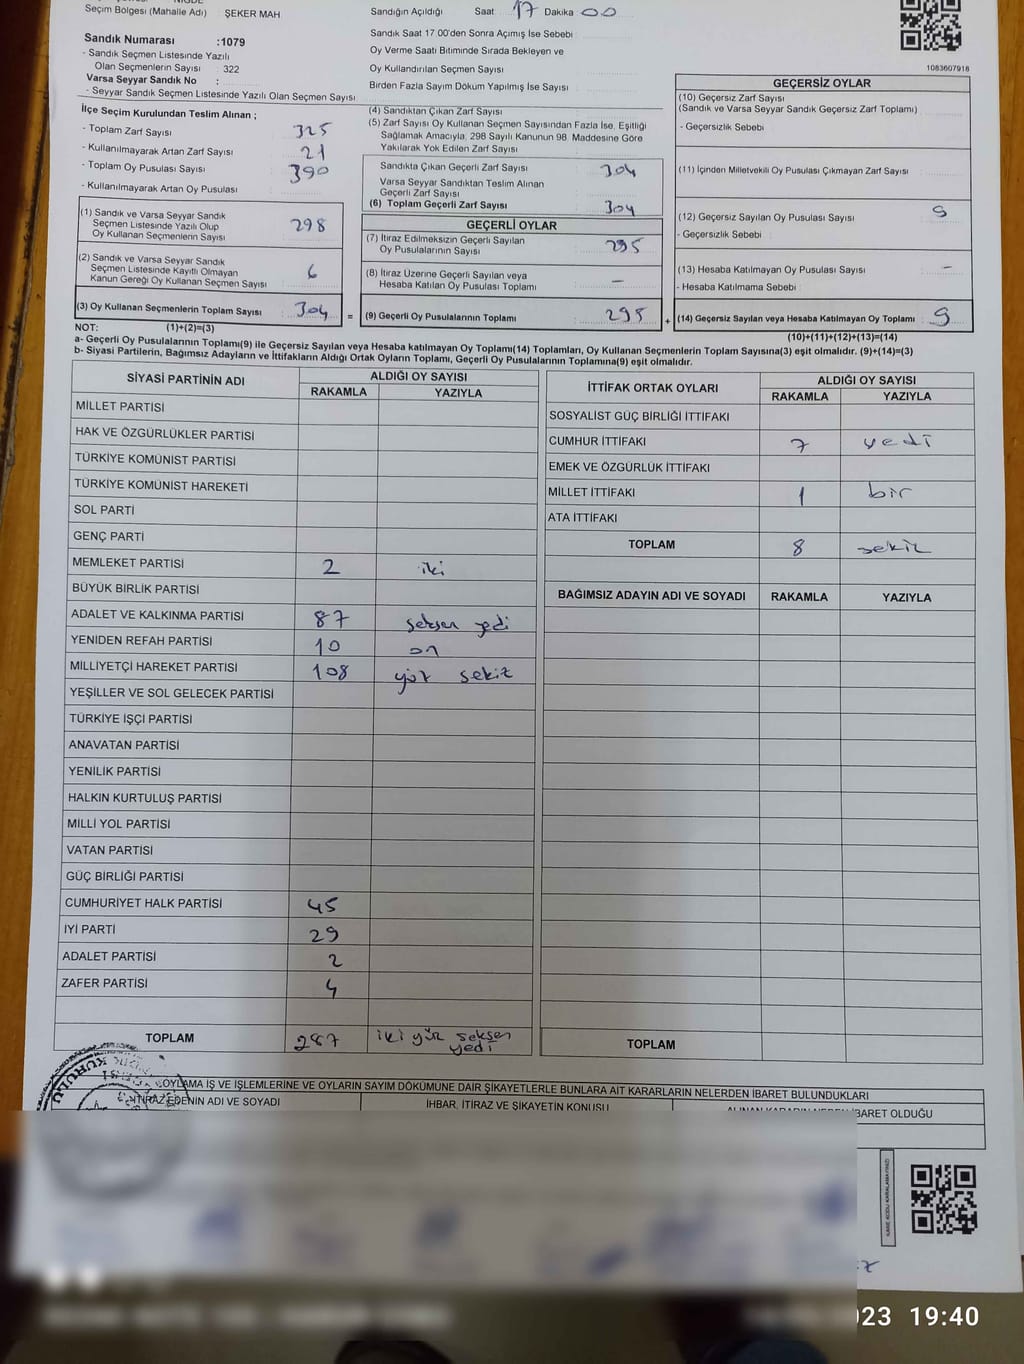 Seçim Bölgesi (Mahalle Adı) : ŞEKER MAH
Sandık Numarası :1079
- Sandık Seçmen Listesinde Yazılı
Olan Seçmenlerin Sayısı : 322
Varsa Seyyar Sandık No :
- Seyyar Sandık Seçmen Listesinde Yazılı Olan Seçmen Sayısı
İlçe Seçim Kurulundan Teslim Alınan ;
- Toplam Zarf Sayısı 325
- Kullanılmayarak Artan Zarf Sayısı 21
- Toplam Oy Pusulası Sayısı 390
- Kullanılmayarak Artan Oy Pusulası
(1) Sandık ve Varsa Seyyar Sandık
Seçmen Listesinde Yazılı Olup
Oy Kullanan Seçmenlerin Sayısı 298
(2) Sandık ve Varsa Seyyar Sandık
Seçmen Listesinde Kayıtlı Olmayan
Kanun Gereği Oy Kullanan Seçmen Sayısı 6
(3) Oy Kullanan Seçmenlerin Toplam Sayısı 304 =
Sandığın Açıldığı Saat 17 Dakika 00
Sandık Saat 17.00'den Sonra Açımış İse Sebebi
Oy Verme Saati Bitiminde Sırada Bekleyen ve
Oy Kullandırılan Seçmen Sayısı
Birden Fazla Sayım Döküm Yapılmış İse Sayısı
(4) Sandıktan Çıkan Zarf Sayısı
(5) Zarf Sayısı Oy Kullanan Seçmen Sayısından Fazla İse, Eşitliği
Sağlamak Amacıyla, 298 Sayılı Kanunun 98. Maddesine Göre
Yakılarak Yok Edilen Zarf Sayısı
Sandıkta Çıkan Geçerli Zarf Sayısı 304
Varsa Seyyar Sandıktan Teslim Alınan
Geçerli Zarf Sayısı
(6) Toplam Geçerli Zarf Sayısı 304
GEÇERLİ OYLAR
(7) İtiraz Edilmeksizin Geçerli Sayılan
Oy Pusulalarının Sayısı 295
(8) İtiraz Üzerine Geçerli Sayılan veya
Hesaba Katılan Oy Pusulası Toplamı -
(9) Geçerli Oy Pusulalarının Toplamı 295 +
1083607918
GEÇERSİZ OYLAR
(10) Geçersiz Zarf Sayısı
(Sandık ve Varsa Seyyar Sandık Geçersiz Zarf Toplamı)
- Geçersizlik Sebebi
(11) İçinden Milletvekili Oy Pusulası Çıkmayan Zarf Sayısı
(12) Geçersiz Sayılan Oy Pusulası Sayısı 9
- Geçersizlik Sebebi
(13) Hesaba Katılmayan Oy Pusulası Sayısı -
- Hesaba Katılmama Sebebi
(14) Geçersiz Sayılan veya Hesaba Katılmayan Oy Toplamı 9
NOT: (1)+(2)=(3) (10)+(11)+(12)+(13)=(14)
a- Geçerli Oy Pusulalarının Toplamı(9) ile Geçersiz Sayılan veya Hesaba katılmayan Oy Toplamı(14) Toplamları, Oy Kullanan Seçmenlerin Toplam Sayısına(3) eşit olmalıdır. (9)+(14)=(3)
b- Siyasi Partilerin, Bağımsız Adayların ve İttifakların Aldığı Ortak Oyların Toplamı, Geçerli Oy Pusulalarının Toplamına(9) eşit olmalıdır.
SİYASİ PARTİNİN ADI ALDIĞI OY SAYISI
RAKAMLA YAZIYLA
MİLLET PARTİSİ
HAK VE ÖZGÜRLÜKLER PARTİSİ
TÜRKİYE KOMÜNİST PARTİSİ
TÜRKİYE KOMÜNİST HAREKETİ
SOL PARTİ
GENÇ PARTİ
MEMLEKET PARTİSİ 2 iki
BÜYÜK BİRLİK PARTİSİ
ADALET VE KALKINMA PARTİSİ 87 seksen yedi
YENİDEN REFAH PARTİSİ 10 on
MİLLİYETÇİ HAREKET PARTİSİ 108 yüz sekiz
YEŞİLLER VE SOL GELECEK PARTİSİ
TÜRKİYE İŞÇİ PARTİSİ
ANAVATAN PARTİSİ
YENİLİK PARTİSİ
HALKIN KURTULUŞ PARTİSİ
MİLLİ YOL PARTİSİ
VATAN PARTİSİ
GÜÇ BİRLİĞİ PARTİSİ
CUMHURİYET HALK PARTİSİ 45
İYİ PARTİ 29
ADALET PARTİSİ 2
ZAFER PARTİSİ 4
TOPLAM 287 iki yüz seksen
yedi
İTTİFAK ORTAK OYLARI ALDIĞI OY SAYISI
RAKAMLA YAZIYLA
SOSYALİST GÜÇ BİRLİĞİ İTTİFAKI
CUMHUR İTTİFAKI 7 yedi
EMEK VE ÖZGÜRLÜK İTTİFAKI
MİLLET İTTİFAKI 1 bir
ATA İTTİFAKI
TOPLAM 8 sekiz
BAĞIMSIZ ADAYIN ADI VE SOYADI RAKAMLA YAZIYLA
TOPLAM
OYLAMA İŞ VE İŞLEMLERİNE VE OYLARIN SAYIM DÖKÜMÜNE DAİR ŞİKAYETLERLE BUNLARA AİT KARARLARIN NELERDEN İBARET BULUNDUKLARI
İTİRAZ EDENİN ADI VE SOYADI İHBAR, İTİRAZ VE ŞİKAYETİN KONUSU ALINAN KARARIN NEDEN İBARET OLDUĞU
KURULU
23 19:40